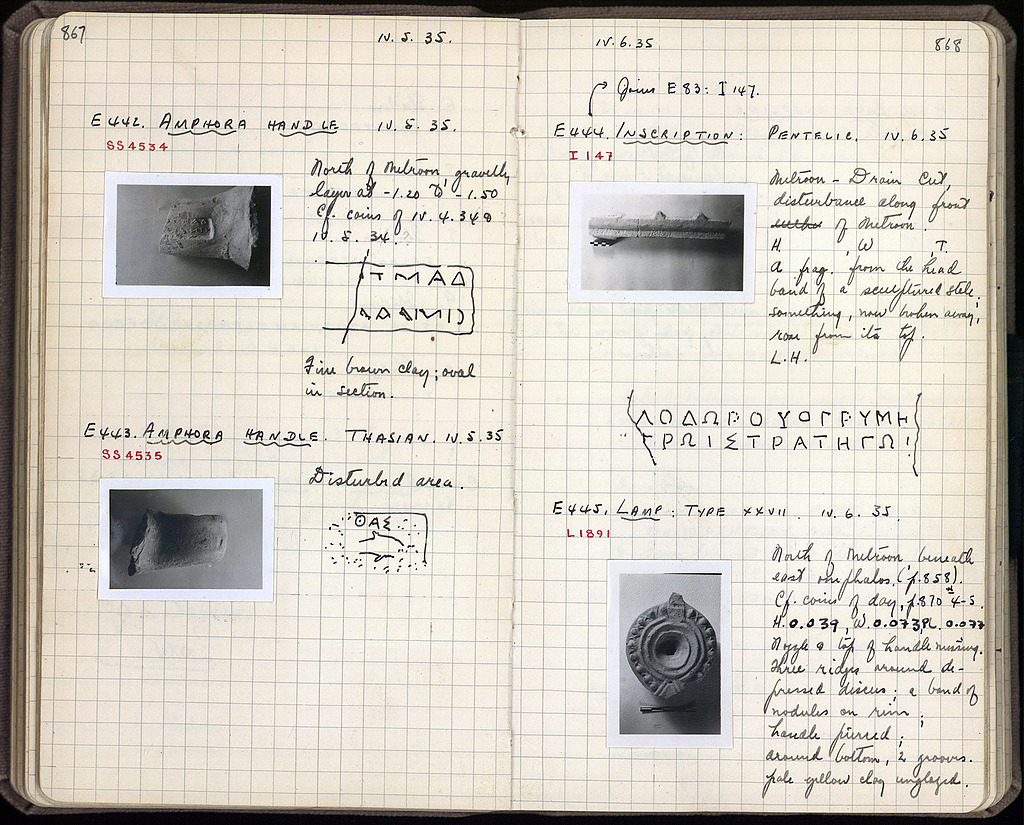 867
IV. 5. 35.
E442. AMPHORA HANDLE IV. 5. 35.
SS4534
North of Metroon, gravelly
layer at -1.20 to -1.50
Cf. coins of IV. 4. 34
IV. 5. 34.
ΤΜΑΔ
Fine brown clay; oval
in section.
E443. AMPHORA HANDLE. THASIAN. IV. 5. 35
SS4535
Disturbed area.
ΘΑΣ
IV. 6. 35
868
Joins E83: I 147.
E444. INSCRIPTION: PENTELIC. IV. 6. 35
I 147
Metroon - Drain Cut,
disturbance along front
of Metroon.
H. W. T.
A frag. from the head
band of a sculptured stele.
something, now broken away,
rose from its top.
L.H.
ΛΟΔΩΡΟΥΟΓΡΥΜΗ
ΓΡΩΙΣΤΡΑΤΗΓΩΙ
E445. LAMP: TYPE XXVII IV. 6. 35.
L1891
North of Metroon, beneath
east omphalos. (p.858).
Cf. coins of day, p.870 #4-5.
H. 0.039, W. 0.073, PL. 0.077
Nozzle & top of handle missing.
Three ridges around de-
pressed discus; a band of
nodules on rim;
handle pierced;
around bottom, 2 grooves.
Pale yellow clay unglazed.